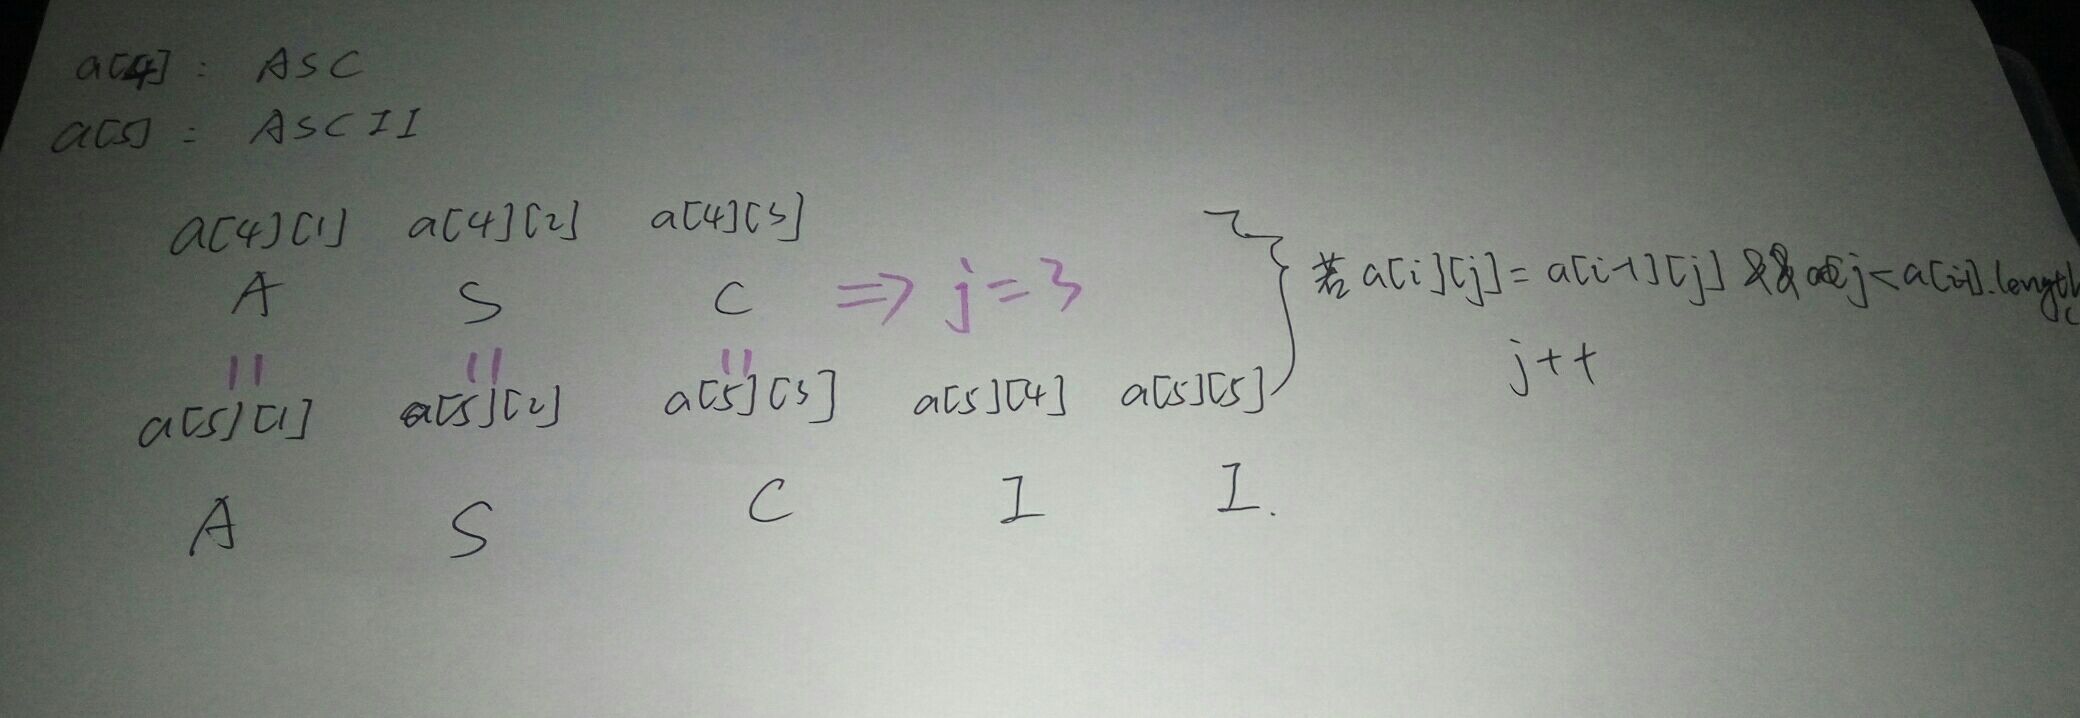 a[4] : ASC
a[5] : ASCII
a[4][1] a[4][2] a[4][3]
A S C ⇒ j=3
|| || ||
a[5][1] a[5][2] a[5][3] a[5][4] a[5][5]
A S C I I.
若 a[i][j] = a[i-1][j] && j<a[i-1].length
j++